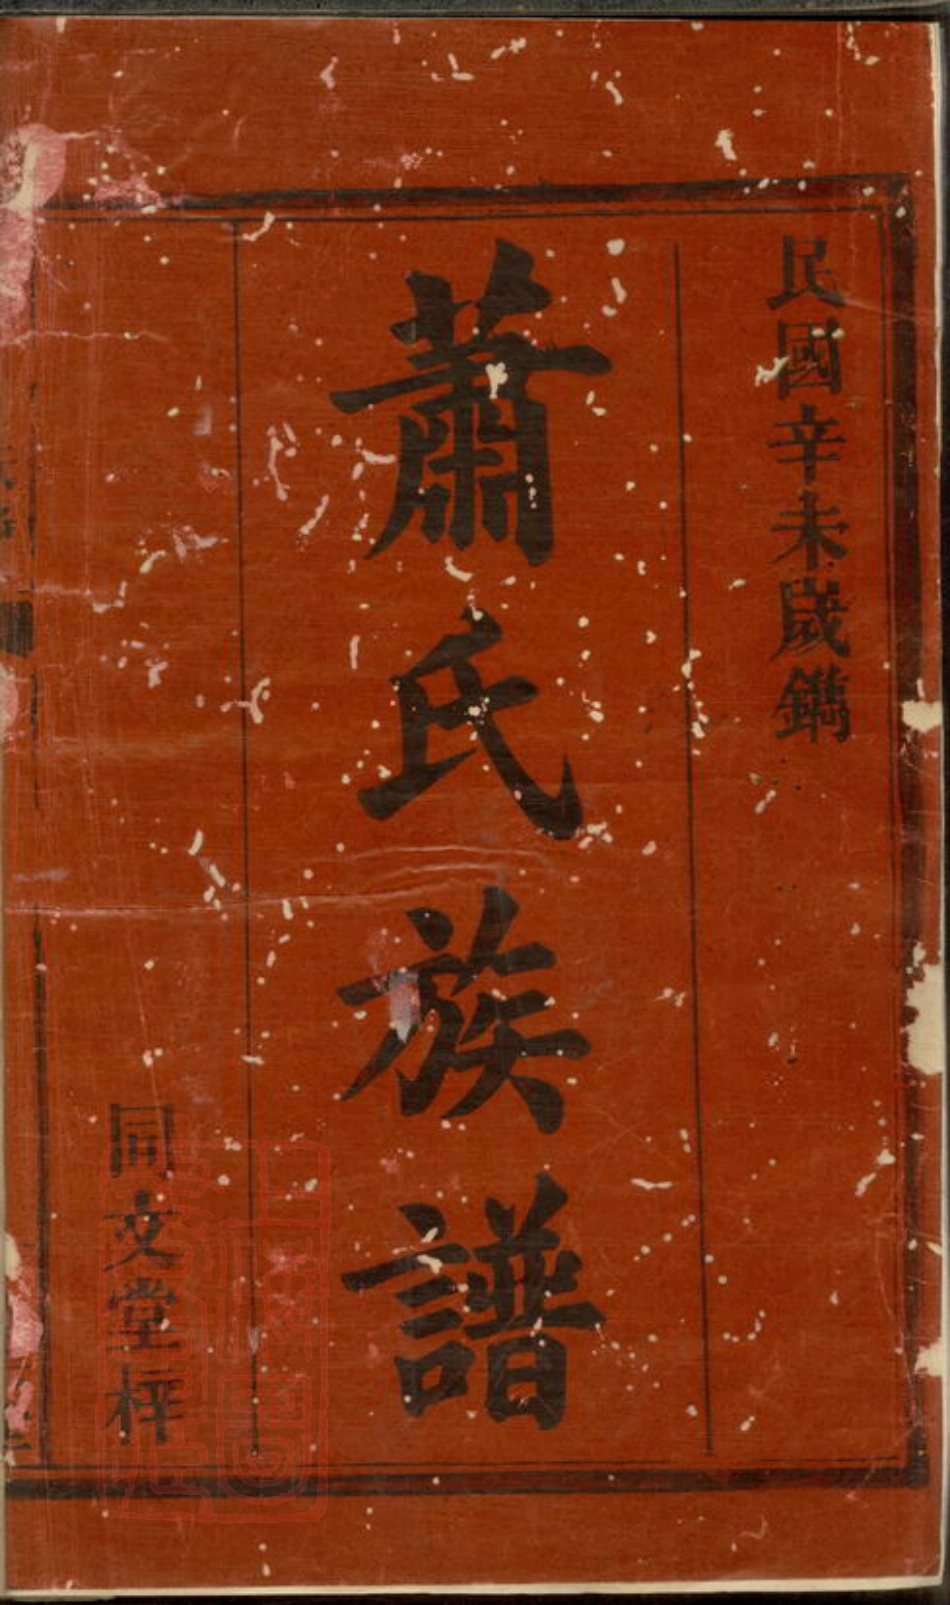 民國辛未歲鐫
蕭氏族譜
同文堂梓